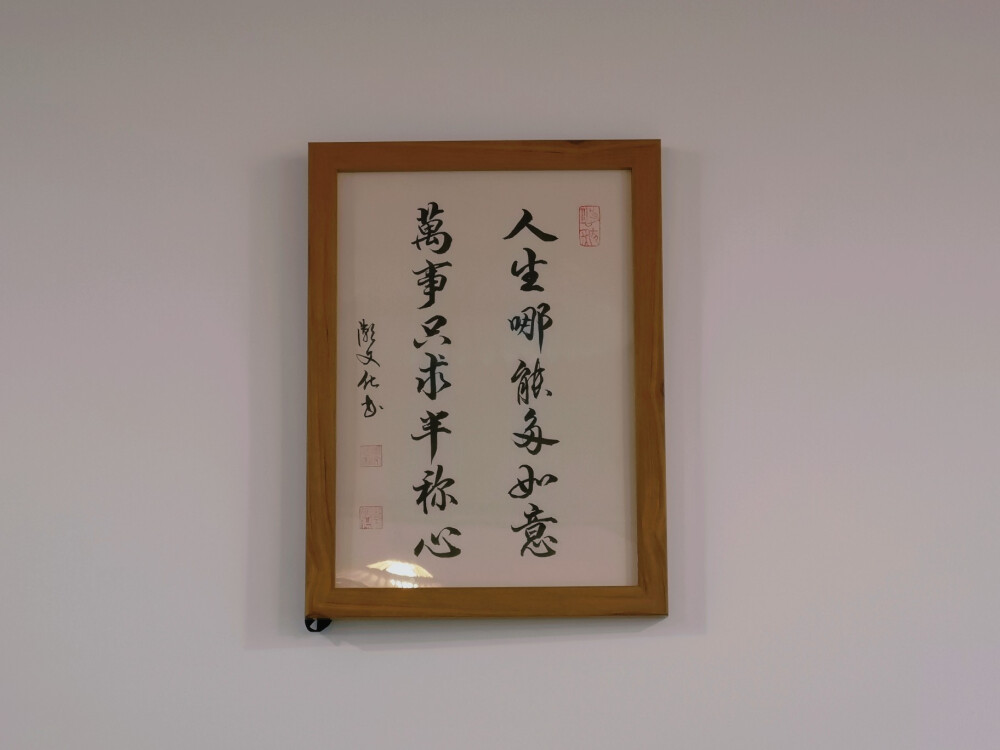 人生哪能多如意
萬事只求半称心
文化书